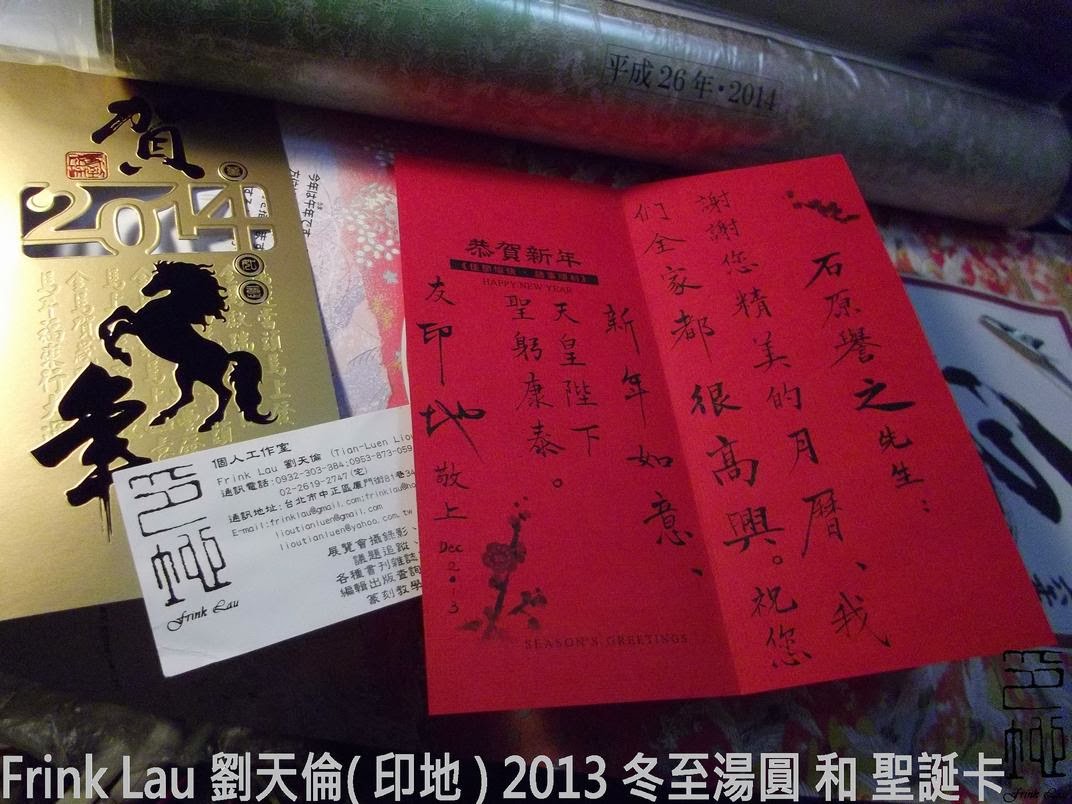 平成26年・2014
賀
2014
年
今年は午年です
恭賀新年
HAPPY NEW YEAR
石原譽之先生：
謝謝您精美的月曆、我
们全家都很高興。祝您
新年如意、
天皇陛下
聖躬康泰。
友印地敬上 Dec 2013
SEASON'S GREETINGS
個人工作室
Frink Lau 劉天倫 (Tian-Luen Liou
通訊電話:0932-303-384;0953-873-059
02-2619-2747(宅)
通訊地址:台北市中正區廈門街81巷34
E-mail:frinklau@gmail.com;frinklau@ho
lioutianluen@gmail.com
lioutianluen@yahoo.com.tw
展覽會攝錄影、
議題追蹤、
各種書刊雜誌
編輯出版查詢
篆刻教學
印地
Frink Lau
印地
Frink Lau
Frink Lau 劉天倫( 印地 ) 2013 冬至湯圓 和 聖誕卡